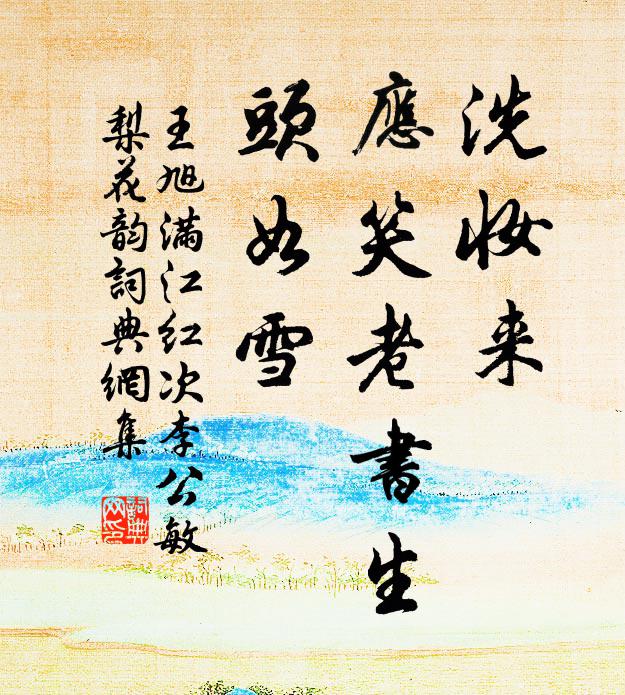 洗妝来
應笑老書生
頭如雪
王旭满江红次李公敏
梨花韵詞典網集